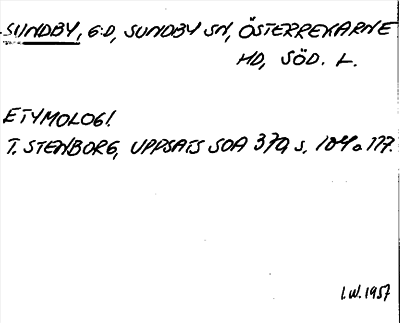 SUNDBY, G:D, SUNDBY SN, ÖSTERREKARNE
HD, SÖD. L.
ETYMOLOGI.
T. STENBORG, UPPSATS SOA 379 s. 104 o 177.
I.W. 1957